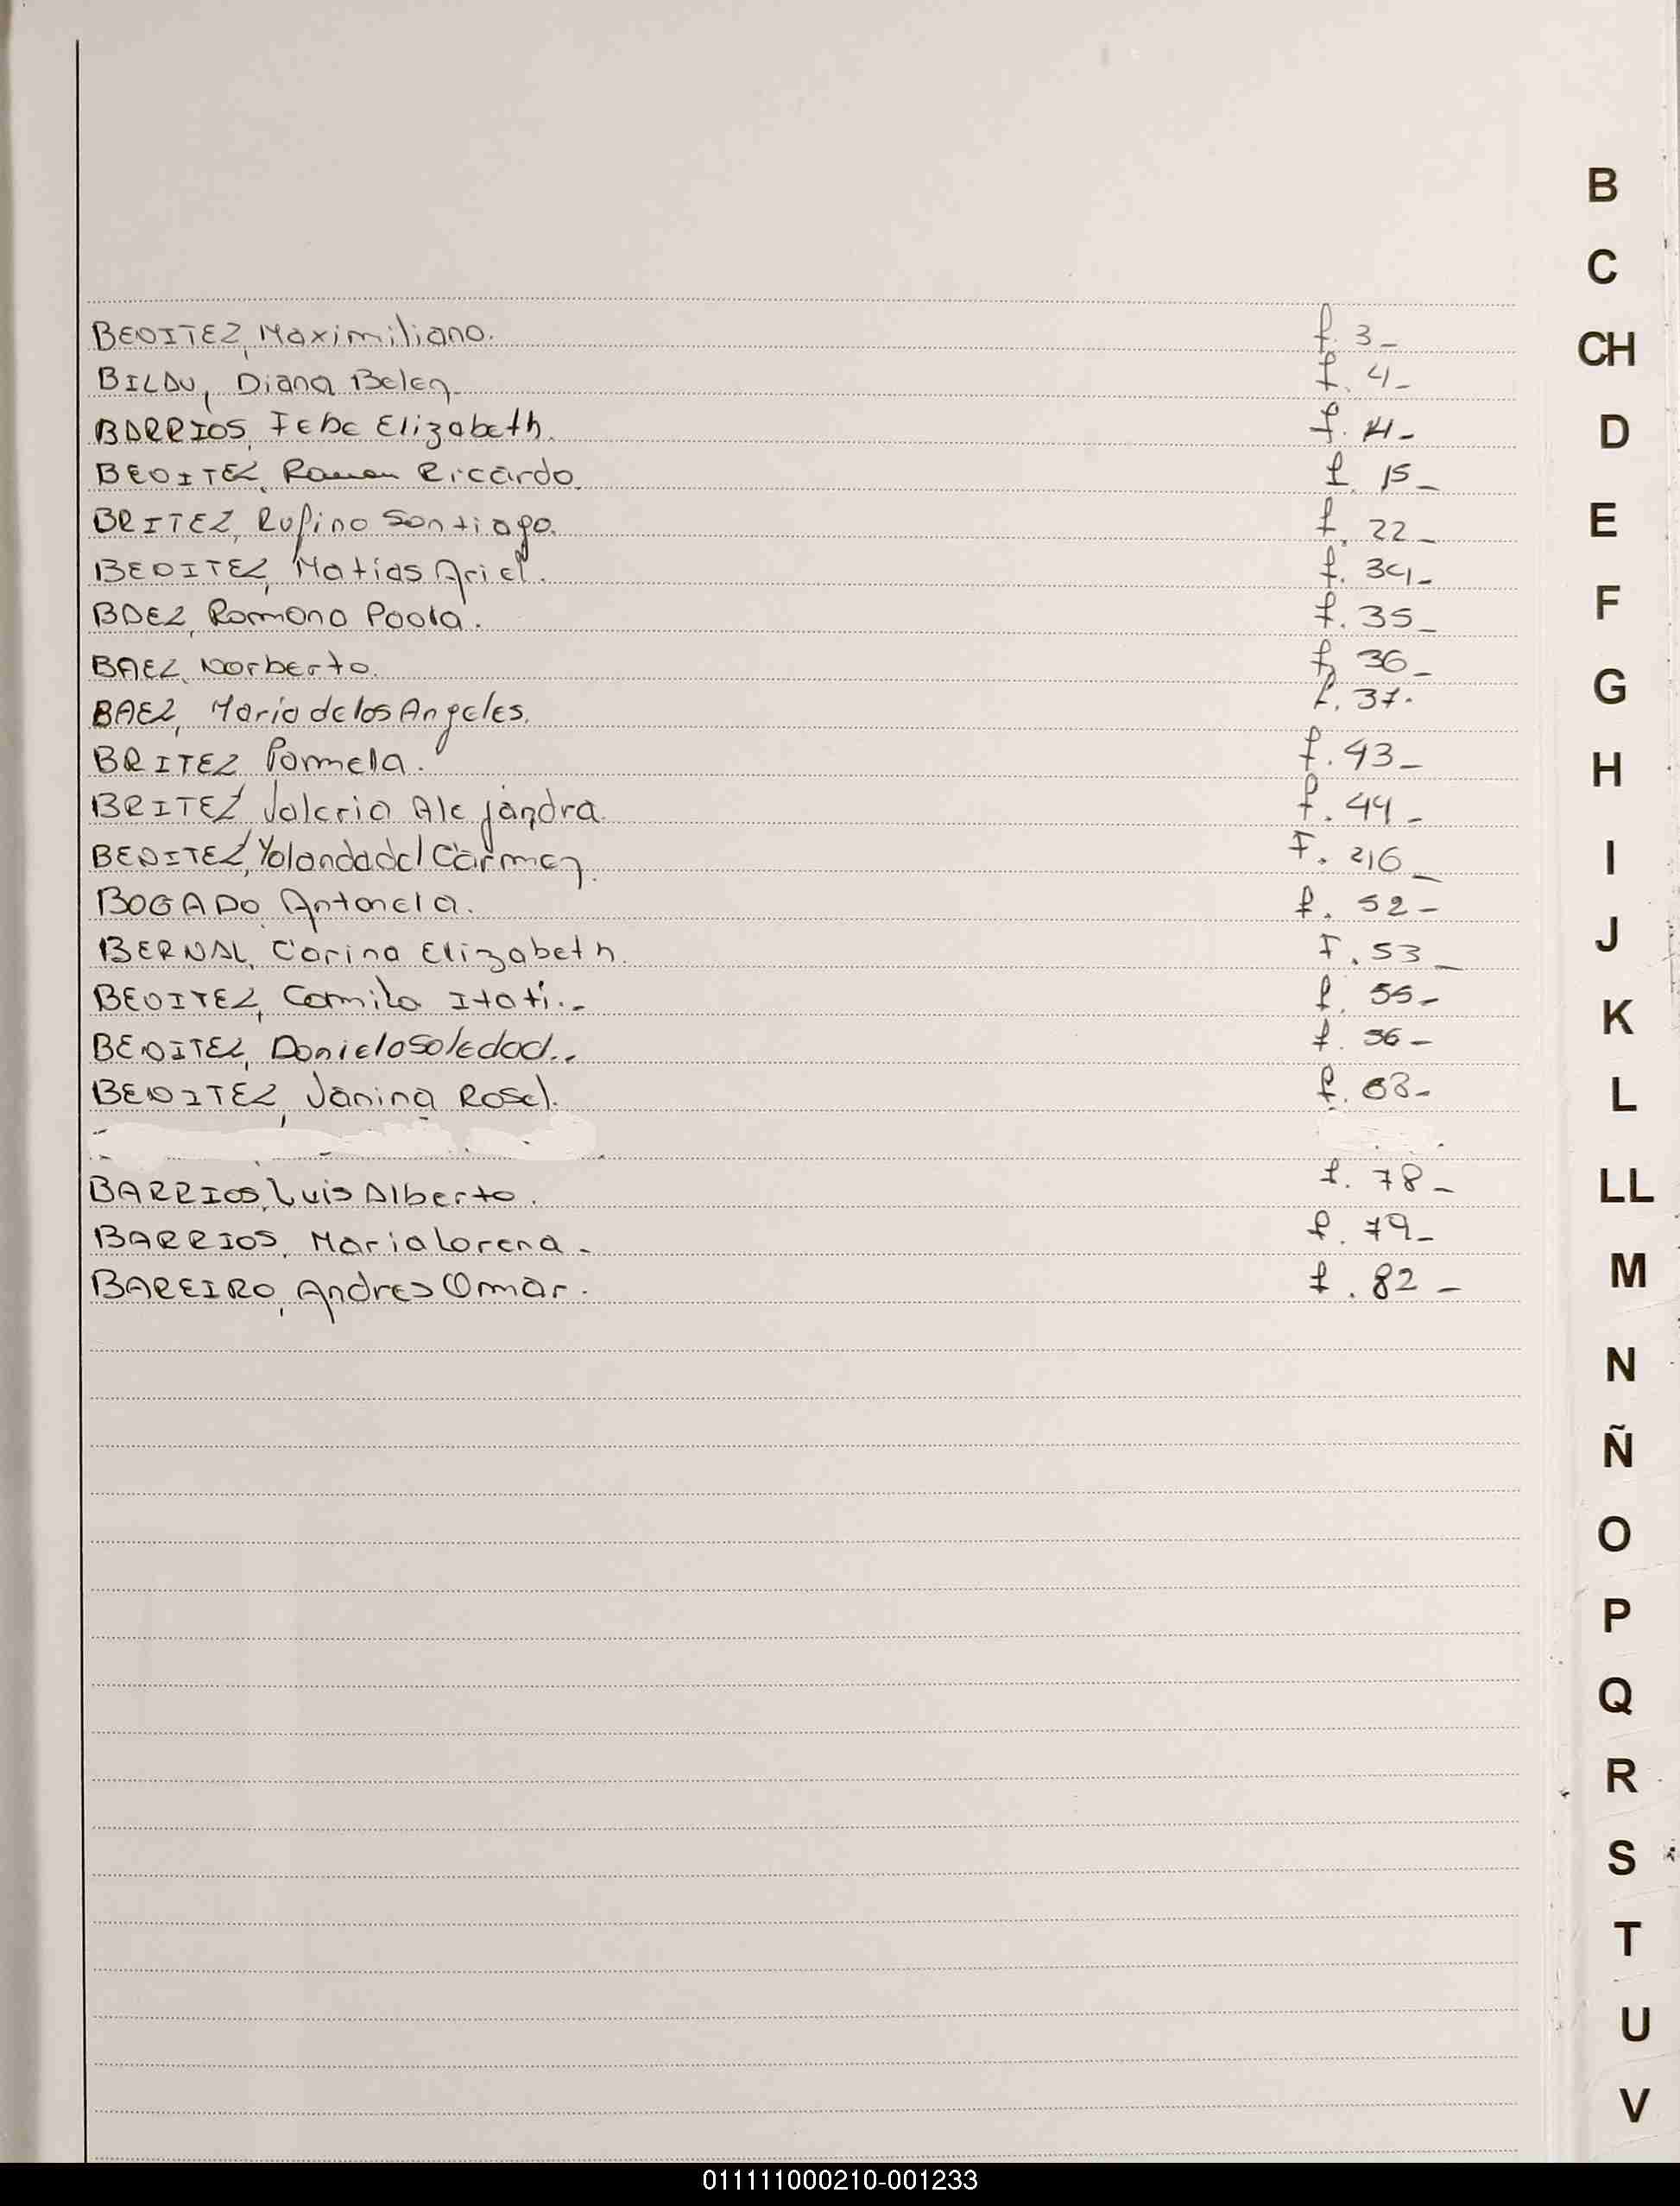 B
C
CH
BENITEZ, Maximiliano. f. 3-
BILAU, Diana Belen f. 4-
BARRIOS, Febe Elizabeth. f. 14-
D
BENITEZ, Ramon Ricardo. f. 15-
BRITEZ, Rufino Santiago. f. 22-
E
BENITEZ, Matias Ariel. f. 34-
BAEZ, Romona Paola. f. 35-
F
BAEZ, Norberto. f. 36-
BAEZ, Maria de los Angeles. f. 37.
G
BRITEZ Pamela. f. 43-
H
BRITEZ Valeria Alejandra. f. 44-
BENITEZ, Yolanda del Carmen. F. 46-
I
BOGADO, Antonela. f. 52-
BERNAL, Carina Elizabeth. F. 53-
J
BENITEZ, Camila Itati.- f. 55-
K
BENITEZ, Daniela Soledad.. f. 56-
BENITEZ, Janina Rosel. f. 68-
L
BARRIOS, Luis Alberto. f. 78-
LL
BARRIOS, Maria Lorena. f. 79-
BAREIRO, Andres Omar. f. 82-
M
N
Ñ
O
P
Q
R
S
T
U
V
011111000210-001233